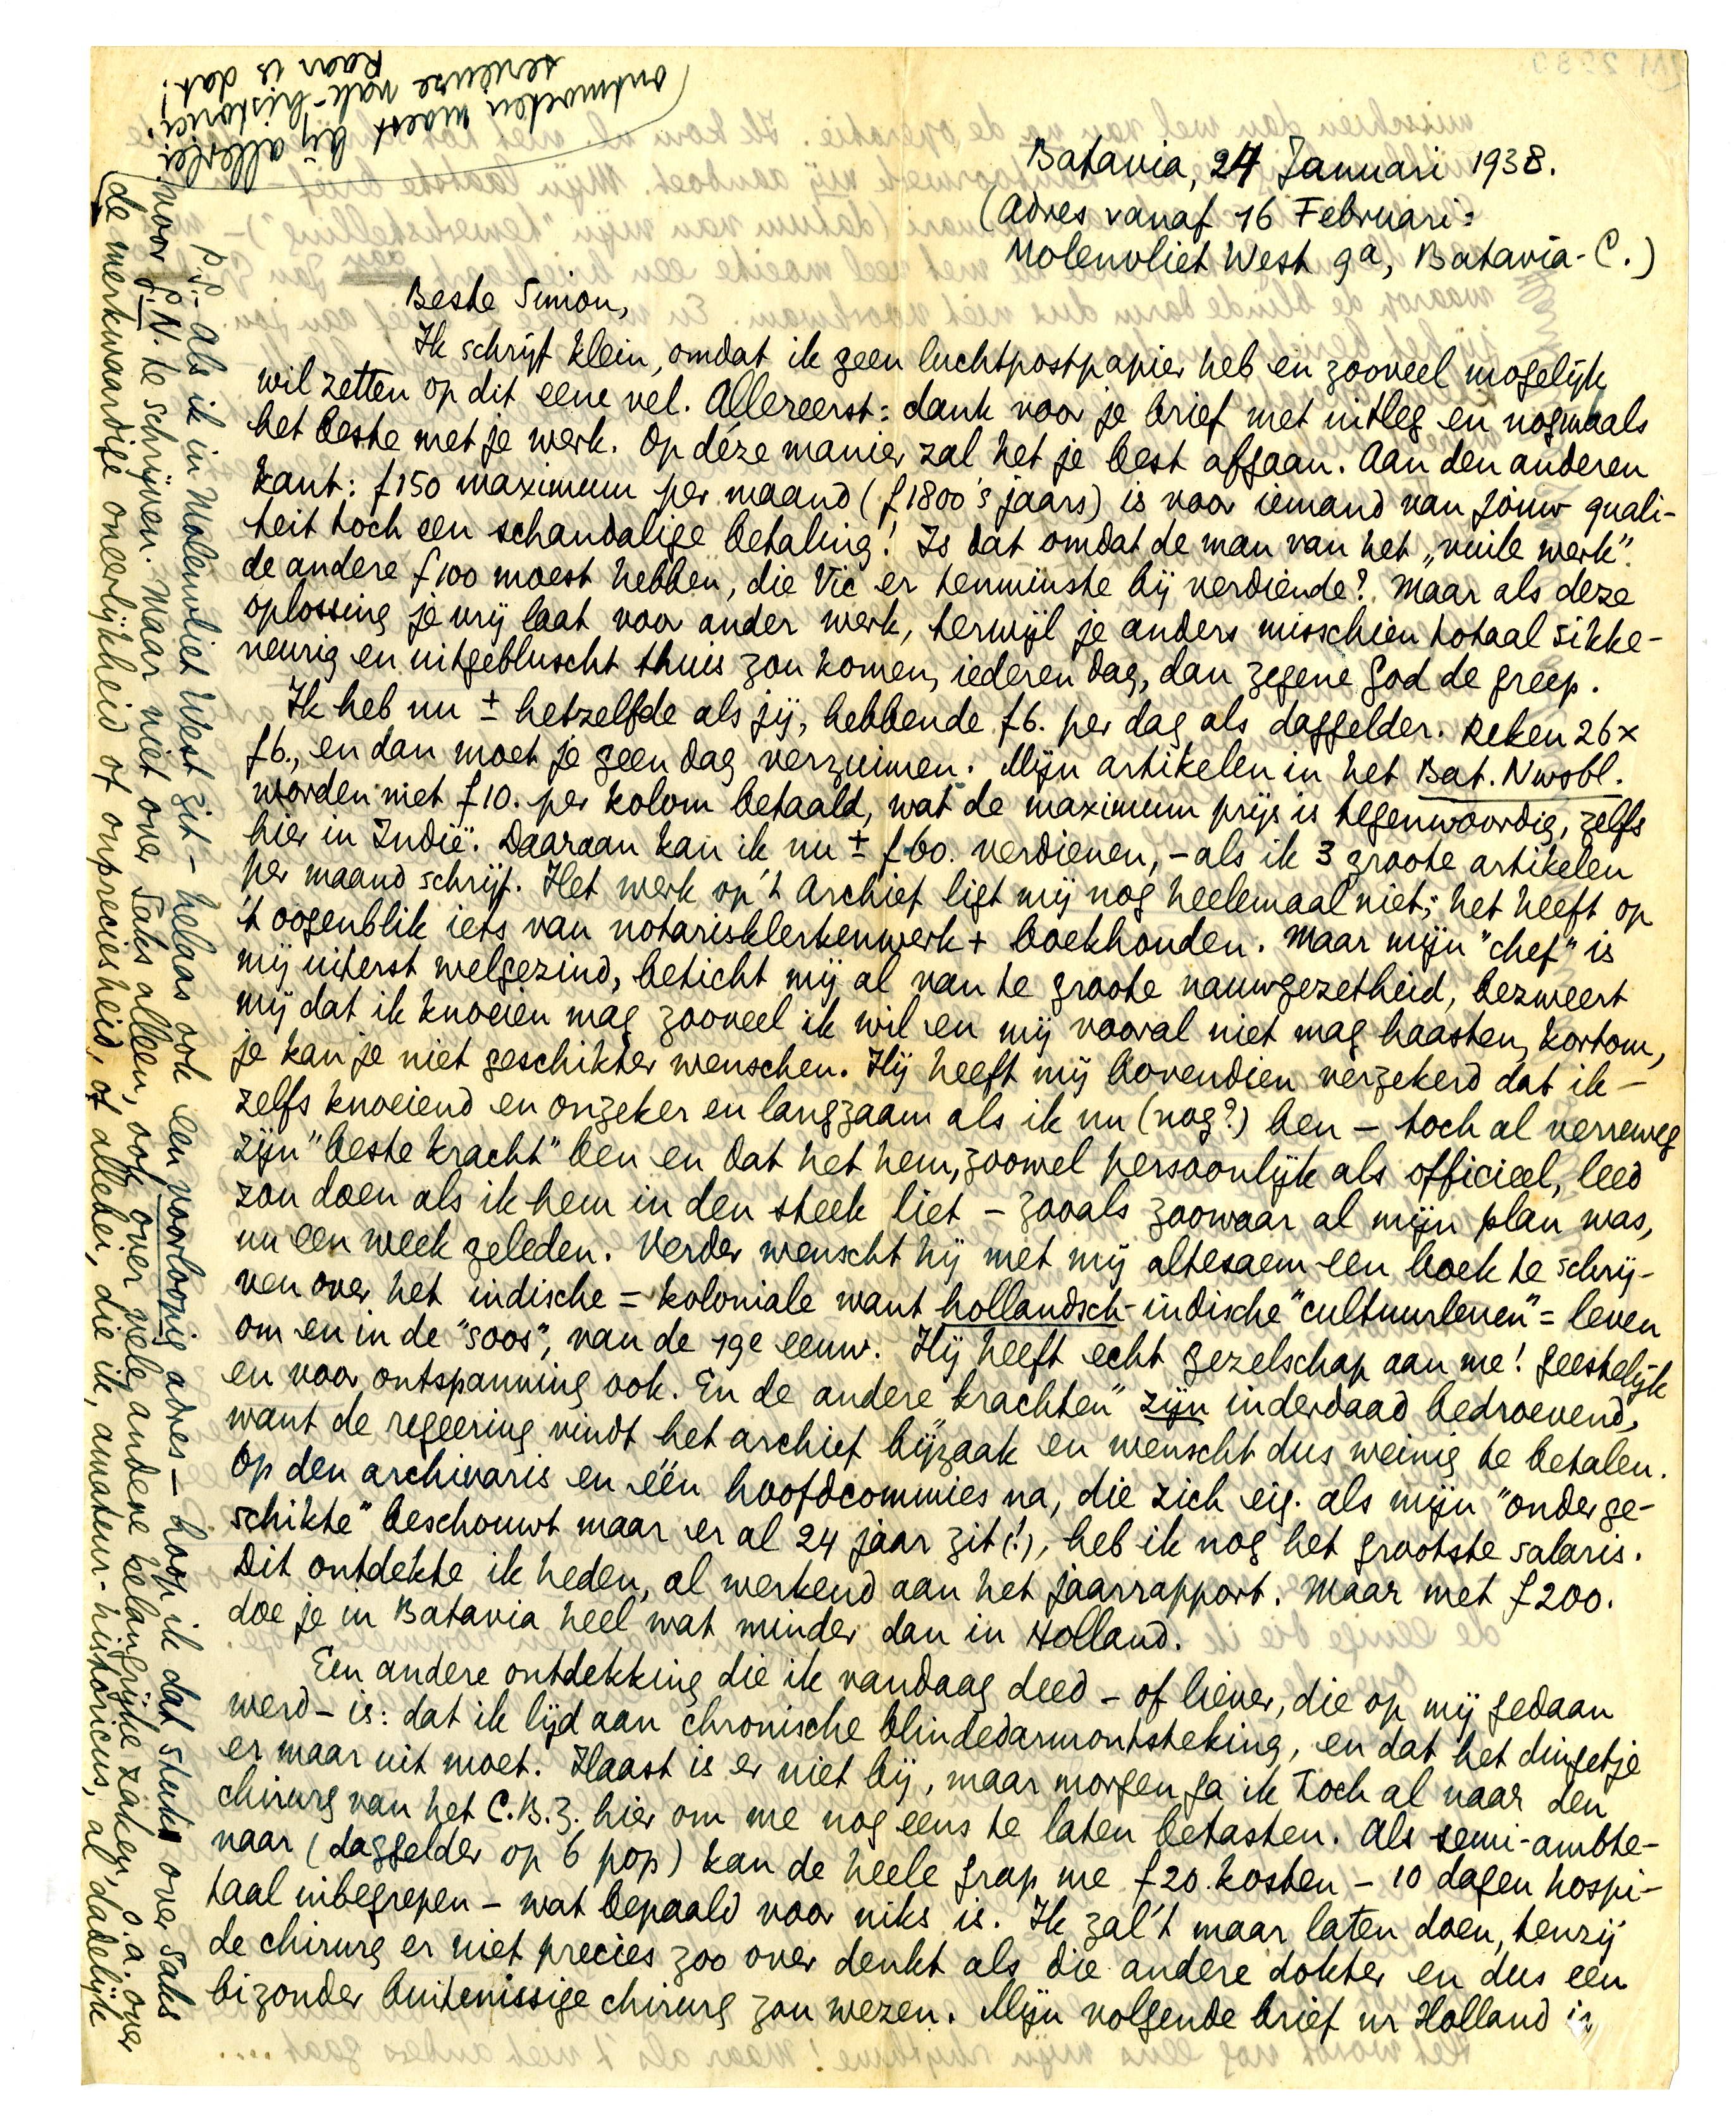 Batavia, 24 Januari 1938.
(Adres vanaf 16 Februari:
Molenvliet West 9a, Batavia-C.)
Beste Simon,
Ik schrijf klein, omdat ik geen luchtpostpapier heb en zooveel mogelijk
wil zetten op dit eene vel. Allereerst: dank voor je brief met uitleg en nogmaals
het beste met je werk. Op déze manier zal het je best afgaan. Aan den anderen
kant: f150 maximum per maand (f1800 's jaars) is voor iemand van jouw quali-
teit toch een schandalige betaling! Is dat omdat de man van het „vuile werk"
de andere f100 moest hebben, die Vic er tenminste bij verdiende? Maar als deze
oplossing je vrij laat voor ander werk, terwijl je anders misschien totaal sikke-
neurig en uitgebluscht thuis zou komen, iederen dag, dan zegene God de greep.
Ik heb nu ± hetzelfde als jij, hebbende f6. per dag als daggelder. Reken 26x
f6., en dan moet je geen dag verzuimen. Mijn artikelen in het Bat. Nwsbl.
worden met f10. per kolom betaald, wat de maximum prijs is tegenwoordig, zelfs
hier in Indië. Daaraan kan ik nu ± f60. verdienen, - als ik 3 groote artikelen
per maand schrijf. Het werk op 't Archief ligt mij nog heelemaal niet; het heeft op
't oogenblik iets van notarisklerkenwerk + boekhouden. Maar mijn "chef" is
mij uiterst welgezind, beticht mij al van te groote nauwgezetheid, bezweert
mij dat ik knoeien mag zooveel ik wil en mij vooral niet mag haasten, kortom,
je kan je niet geschikter wenschen. Hij heeft mij bovendien verzekerd dat ik –
zelfs knoeiend en onzeker en langzaam als ik nu (nog?) ben – toch al verreweg
zijn "beste kracht" ben en dat het hem, zoowel persoonlijk als officieel, leed
zou doen als ik hem in den steek liet – zooals zoowaar al mijn plan was,
nu een week geleden. Verder wenscht hij met mij altesaem een boek te schrij-
ven over het indische = koloniale want hollandsch-indische "cultuurleven" = leven
om en in de "soos", van de 19e eeuw. Hij heeft echt gezelschap aan me! geestelijk
en voor ontspanning ook. En de andere "krachten" zijn inderdaad bedroevend,
want de regeering vindt het archief bijzaak en wenscht dus weinig te betalen.
Op den archivaris en één hoofdcommies na, die zich eig. als mijn "onderge-
schikte" beschouwt maar er al 24 jaar zit (!), heb ik nog het grootste salaris.
Dit ontdekte ik heden, al werkend aan het jaarrapport. Maar met f200.
doe je in Batavia heel wat minder dan in Holland.
Een andere ontdekking die ik vandaag deed – of liever, die op mij gedaan
werd – is: dat ik lijd aan chronische blindedarmontsteking, en dat het dingetje
er maar uit moet. Haast is er niet bij, maar morgen ga ik toch al naar den
chirurg van het C.B.Z. hier om me nog eens te laten betasten. Als semi-ambte-
naar (daggelder op 6 pop) kan de heele grap me f20. kosten – 10 dagen hospi-
taal inbegrepen – wat bepaald voor niks is. Ik zal 't maar laten doen, tenzij
de chirurg er niet precies zoo over denkt als die andere dokter en dus een
bizonder buitenissige chirurg zou wezen. Mijn volgende brief nr Holland is
P.S. – Als ik in Molenvliet West zit – helaas ook een voorloopig adres – hoop ik dat stuk over Saks
voor G.N. te schrijven. Maar niet over Saks alleen, ook over vele andere belangrijke zaken, o.a. over
de merkwaardige oneerlijkheid of onpreciesheid, of allebei, die ik, amateur-historicus, al dadelijk
ontmoeten moest bij allerlei
serieuze vak-historici!
Raar is dat.